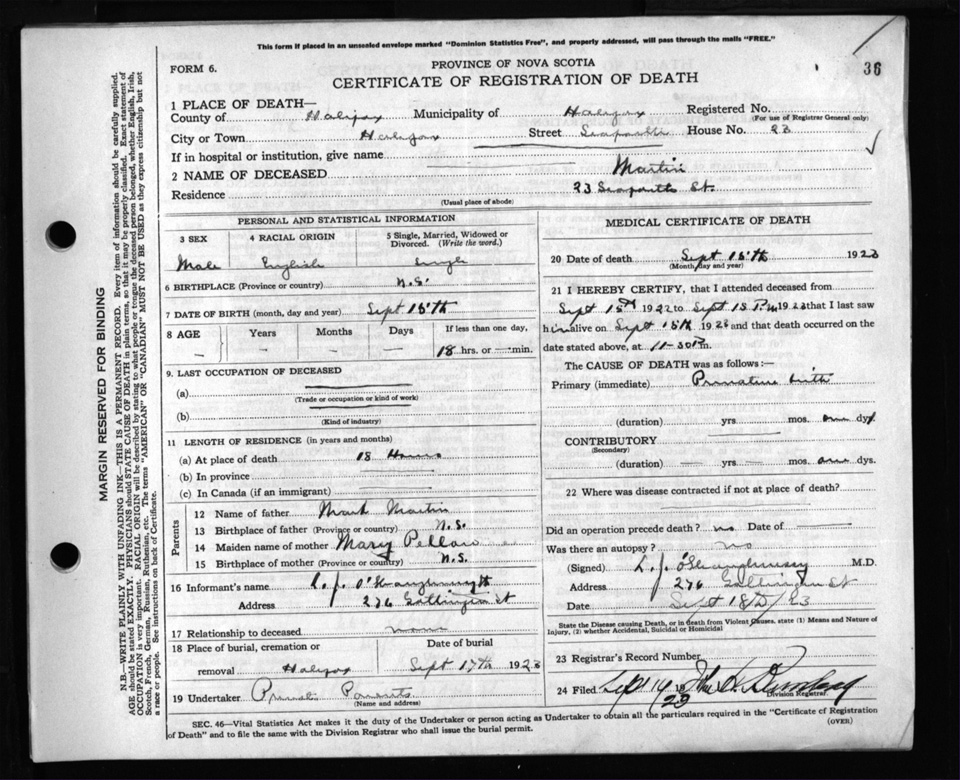 This form if placed in an unsealed envelope marked "Dominion Statistics Free", and properly addressed, will pass through the mails "FREE."
36
FORM 6.
PROVINCE OF NOVA SCOTIA
CERTIFICATE OF REGISTRATION OF DEATH
1 PLACE OF DEATH—
County of Halifax Municipality of Halifax Registered No.
(For use of Registrar General only)
City or Town Halifax Street House No. 23
If in hospital or institution, give name
2 NAME OF DECEASED Martin
Residence 23 St.
(Usual place of abode)
PERSONAL AND STATISTICAL INFORMATION
3 SEX 4 RACIAL ORIGIN 5 Single, Married, Widowed or Divorced. (Write the word.)
Male English Single
6 BIRTHPLACE (Province or country) N.S.
7 DATE OF BIRTH (month, day and year) Sept 15th
8 AGE Years Months Days If less than one day,
— — — 18 hrs. or — min.
9. LAST OCCUPATION OF DECEASED
(a)
(Trade or occupation or kind of work)
(b)
(Kind of industry)
11 LENGTH OF RESIDENCE (in years and months)
(a) At place of death 18 Hours
(b) In province
(c) In Canada (if an immigrant)
Parents
12 Name of father Mark Martin
13 Birthplace of father (Province or country) N.S.
14 Maiden name of mother Mary Pellow
15 Birthplace of mother (Province or country) N.S.
16 Informant's name L. J. O'Shaughnessy
Address 276 Gottingen St
17 Relationship to deceased none
18 Place of burial, cremation or removal Halifax
Date of burial Sept 17th 1923
19 Undertaker Parents
(Name and address)
MEDICAL CERTIFICATE OF DEATH
20 Date of death Sept 15th 1923
(Month, day and year)
21 I HEREBY CERTIFY, that I attended deceased from
Sept 15th 1923 to Sept 15 P.m 1923 that I last saw
him alive on Sept 15th 1923 and that death occurred on the
date stated above, at 11-30 P.m.
The CAUSE OF DEATH was as follows:—
Primary (immediate) Premature birth
(duration) yrs. mos. one dys.
CONTRIBUTORY
(Secondary)
(duration) yrs. mos. one dys.
22 Where was disease contracted if not at place of death?
Did an operation precede death? no Date of
Was there an autopsy? no
(Signed) L. J. O'Shaughnessy M.D.
Address 276 Gottingen St
Date Sept 18th / 23
State the Disease causing Death, or in death from Violent Causes, state (1) Means and Nature of Injury, (2) whether Accidental, Suicidal or Homicidal
23 Registrar's Record Number
24 Filed Sept 19 23
Division Registrar
SEC. 46—Vital Statistics Act makes it the duty of the Undertaker or person acting as Undertaker to obtain all the particulars required in the "Certificate of Registration of Death" and to file the same with the Division Registrar who shall issue the burial permit. (OVER)
MARGIN RESERVED FOR BINDING
N.B.—WRITE PLAINLY WITH UNFADING INK—THIS IS A PERMANENT RECORD. Every item of information should be carefully supplied.
AGE should be stated EXACTLY. PHYSICIANS should STATE CAUSE OF DEATH in plain terms, so that it may be properly classified. Exact statement of
OCCUPATION is very important. RACIAL ORIGIN will be described by stating to what people or tongue the deceased person belonged, whether English, Irish,
Scotch, French, German, Russian, Ruthenian, etc. The terms "AMERICAN" or "CANADIAN" MUST NOT BE USED as they express citizenship but not
a race or people. See instructions on back of Certificate.